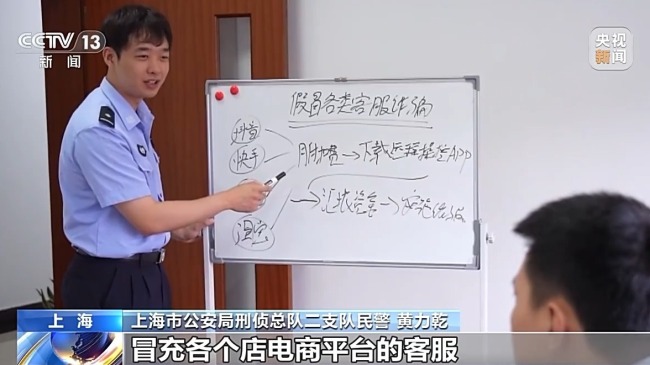 CCTV 13
新闻
央视
新闻
假冒各类客服诈骗
抖音
快手
下载远程操控APP
淘宝
上海
上海市公安局刑侦总队二支队民警 黄力乾
冒充各个店电商平台的客服